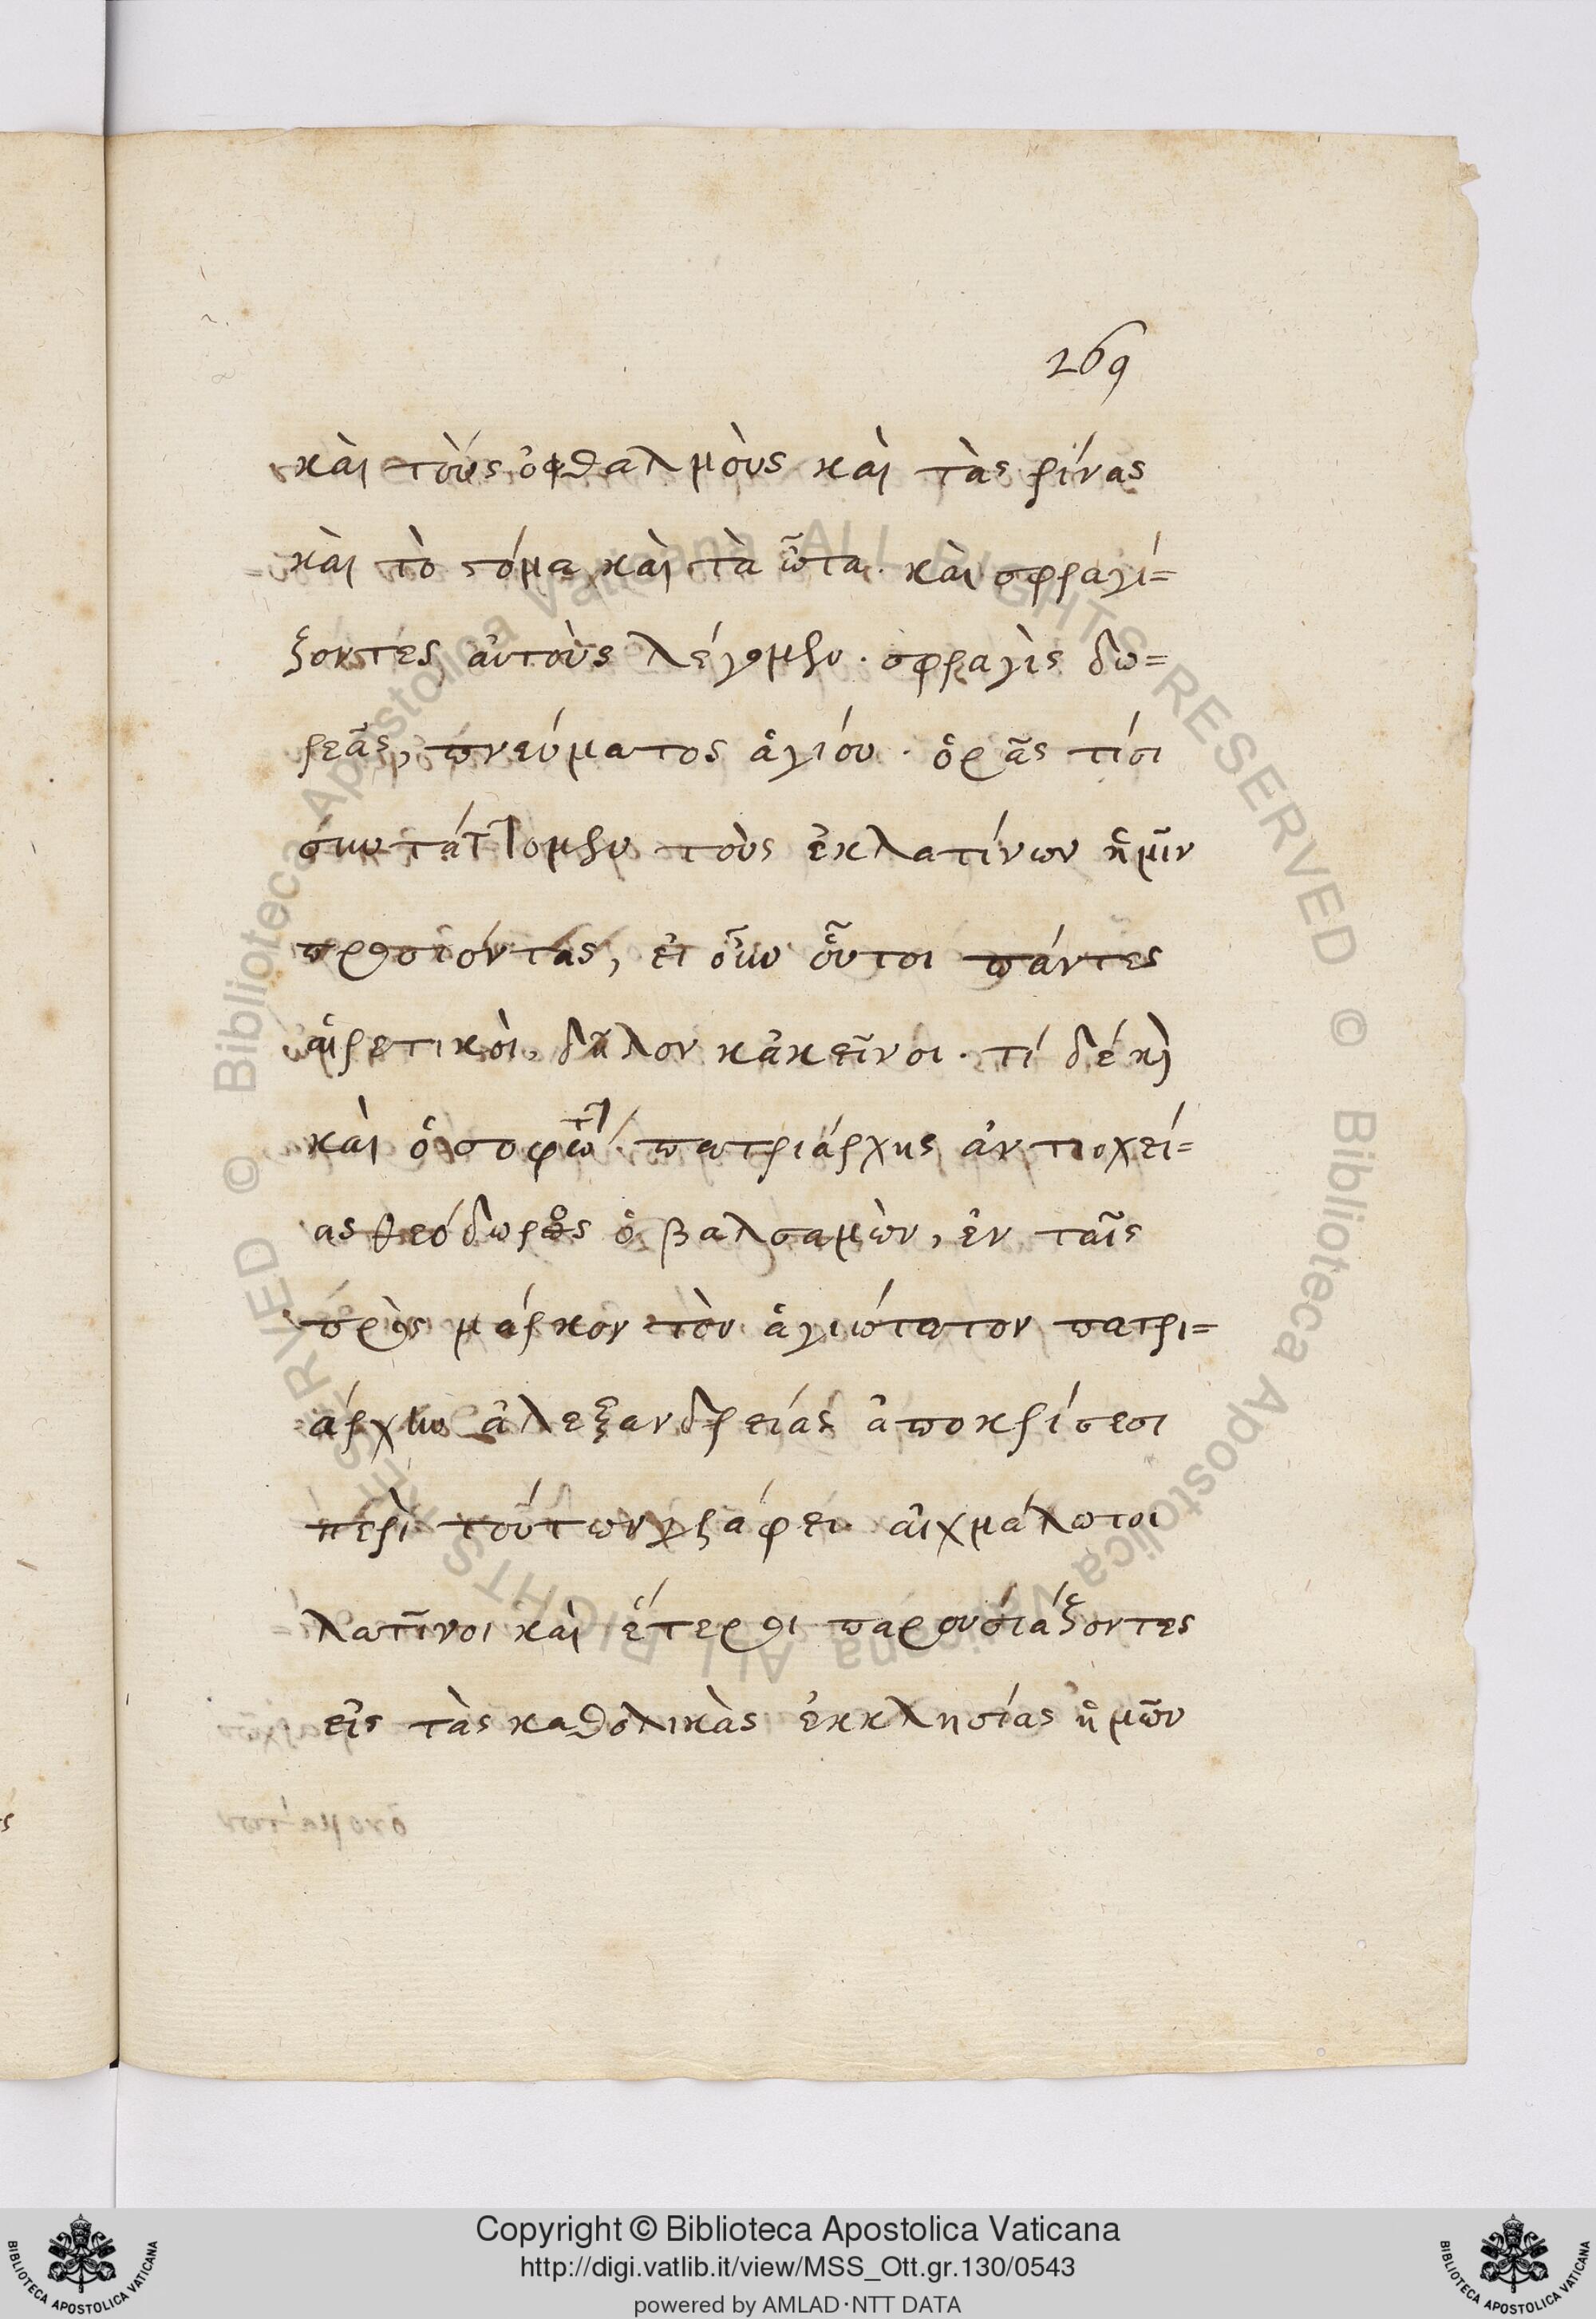 269
καὶ τοὺς ὀφθαλμοὺς καὶ τὰς ρίνας
καὶ τὸ στόμα καὶ τὰ ὦτα. καὶ σφραγί=
ζοντες αὐτοὺς λέγομεν. σφραγὶς δω=
ρεᾶς, πνεύματος ἁγίου. ὁρᾶς τίσι
συντάττομεν τοὺς ἐκλατίνων ἡμῖν
προσιόντας, εἰ οὖν οὗτοι πάντες
αἱρετικοὶ, δῆλον κἀκεῖνοι. τί δέ κὶ
καὶ ὁ σοφώτ πατριάρχης ἀντιοχεί=
ας θεόδωρος ὁ βαλσαμὼν, ἐν ταῖς
πρὸς μάρκον τὸν ἁγιώτατον πατρι=
άρχην ἀλεξανδρείας ἀποκρίσεσι
περὶ τούτων γράφει. αἰχμάλωτοι
λατῖνοι καὶ ἕτεροι παρουσιάζοντες
εἰς τὰς καθολικὰς ἐκκλησίας ἡμῶν
© Biblioteca Apostolica Vaticana ALL RIGHTS RESERVED © Biblioteca Apostolica Vaticana ALL RIGHTS RESERVED
Copyright © Biblioteca Apostolica Vaticana
http://digi.vatlib.it/view/MSS_Ott.gr.130/0543
powered by AMLAD·NTT DATA
BIBLIOTECA APOSTOLICA VATICANA
BIBLIOTECA APOSTOLICA VATICANA